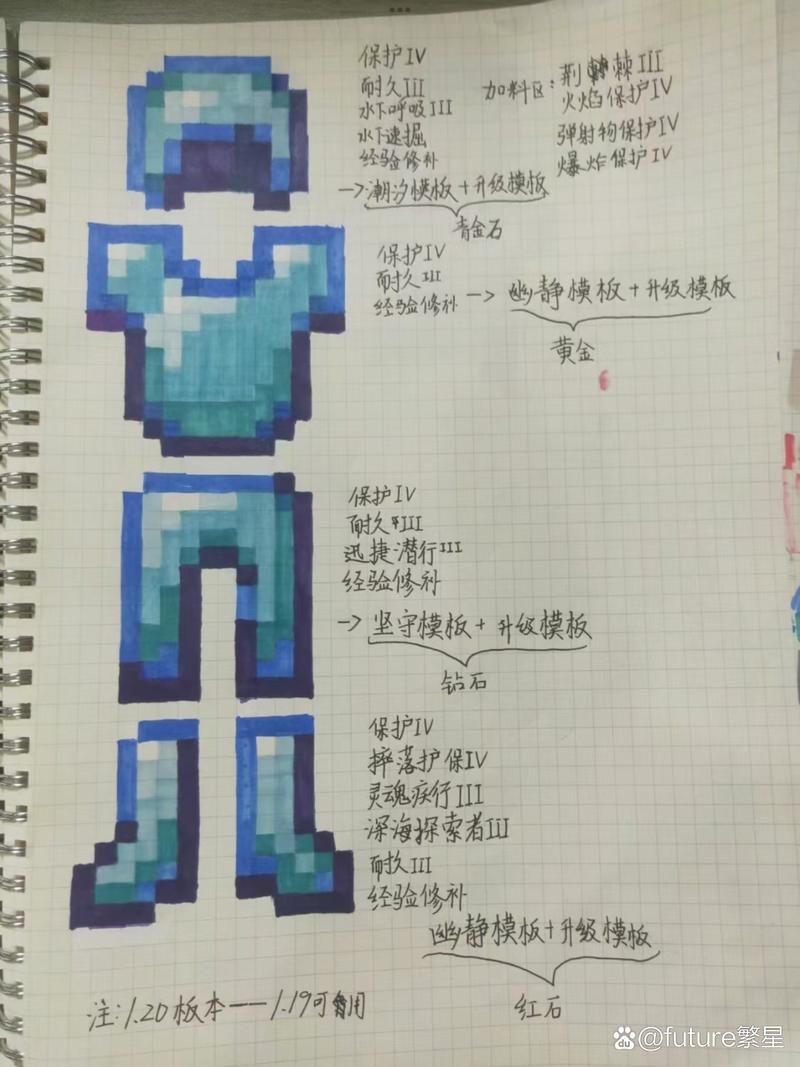 保护IV
耐久III
水下呼吸III
水下速掘
经验修补
加料区:荆棘III
火焰保护IV
弹射物保护IV
爆炸保护IV
→潮汐模板+升级模板
青金石
保护IV
耐久III
经验修补→幽静模板+升级模板
黄金
保护IV
耐久III
迅捷潜行III
经验修补
→坚守模板+升级模板
钻石
保护IV
摔落护保IV
灵魂疾行III
深海探索者III
耐久III
经验修补
幽静模板+升级模板
红石
注:1.20板本——1.19可用
Bai@future繁星